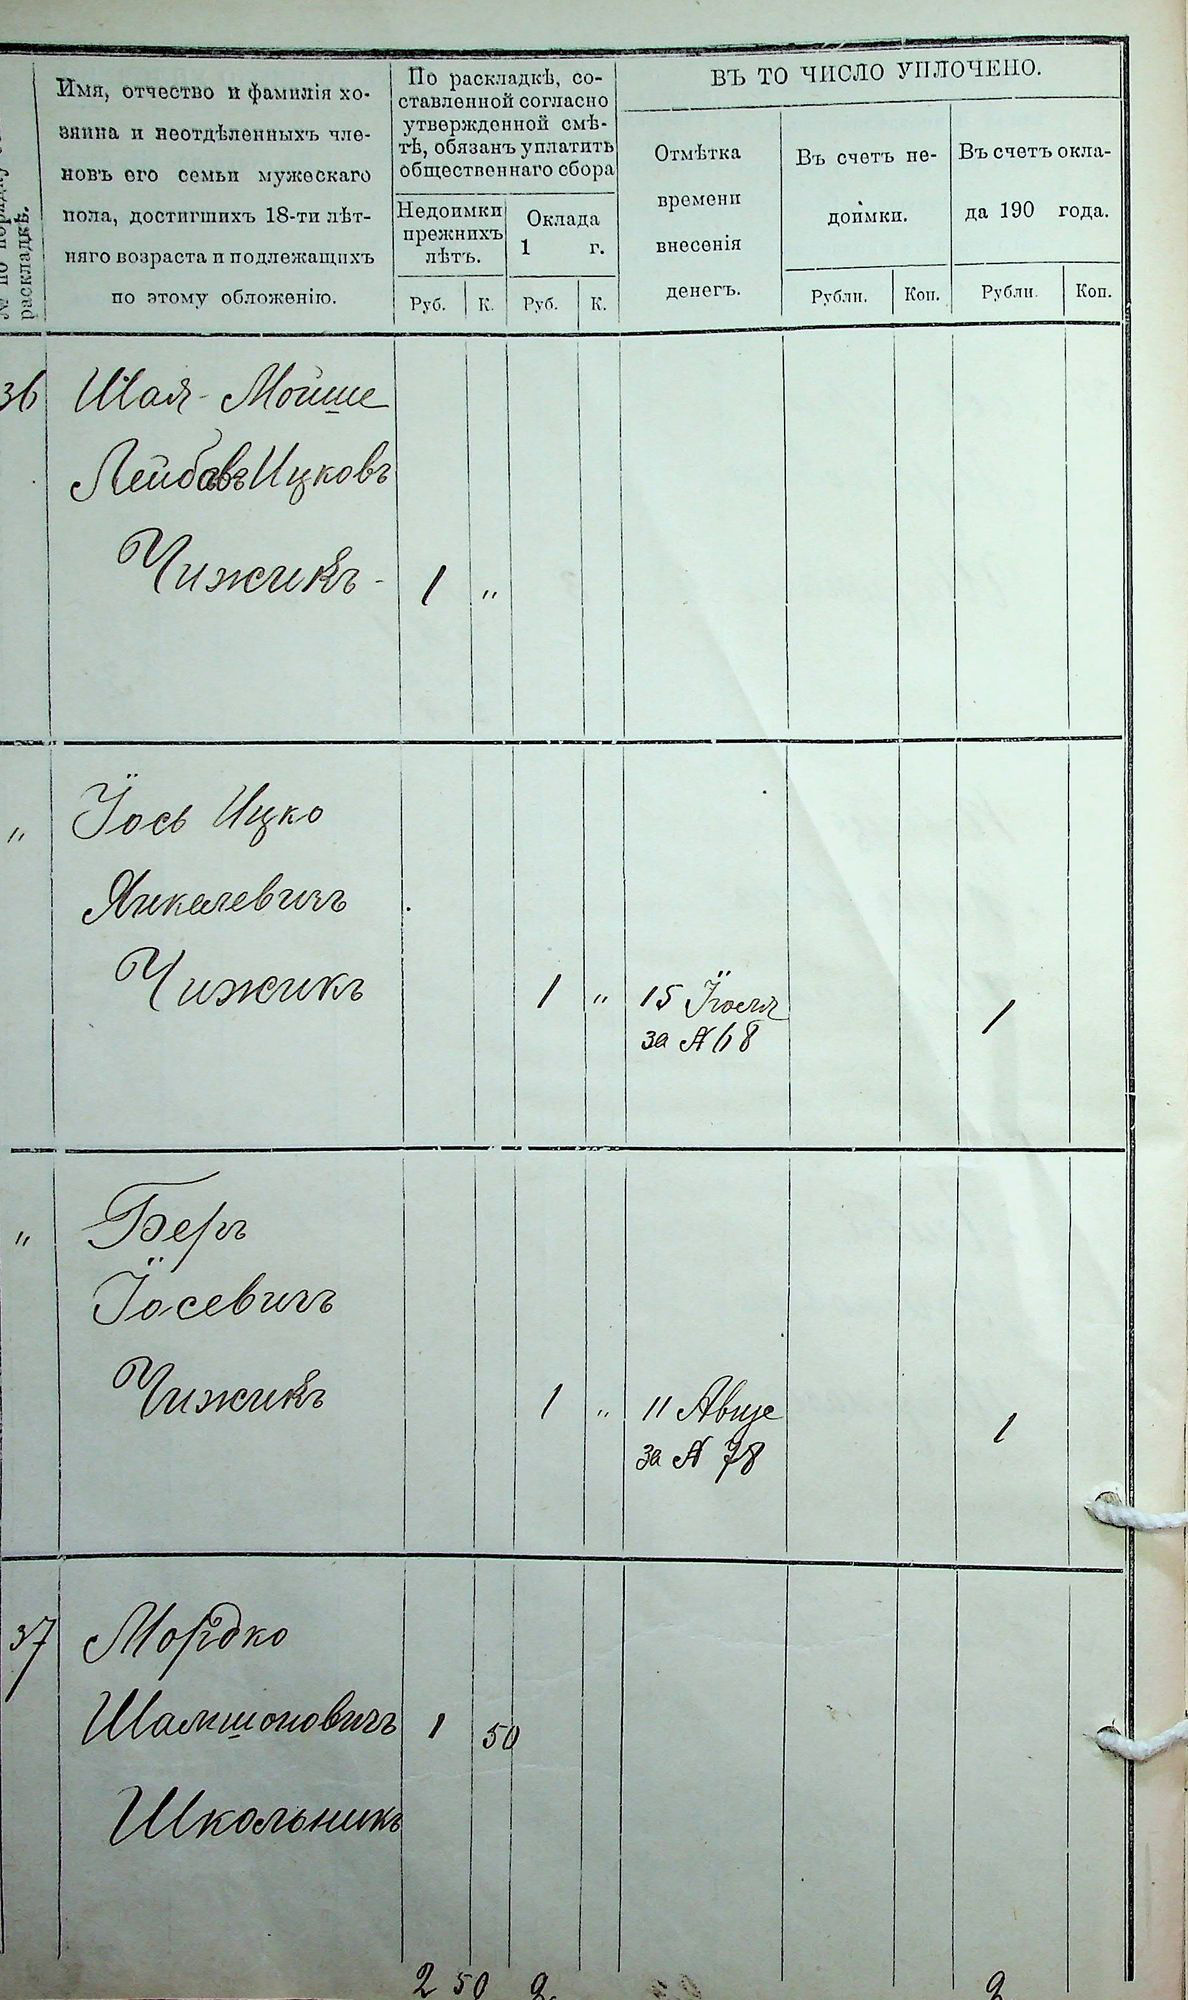 № по порядку
раскладкѣ.
Имя, отчество и фамилія хо-
зяина и неотдѣленныхъ чле-
новъ его семьи мужескаго
пола, достигшихъ 18-ти лѣт-
няго возраста и подлежащихъ
по этому обложенію.
По раскладкѣ, со-
ставленной согласно
утвержденной смѣ-
тѣ, обязанъ уплатить
общественнаго сбора
Недоимки
прежнихъ
лѣтъ.
Оклада
1 г.
Руб. К. Руб. К.
ВЪ ТО ЧИСЛО УПЛОЧЕНО.
Отмѣтка
времени
внесенія
денегъ.
Въ счетъ не-
доимки.
Въ счетъ окла-
да 190 года.
Рубли. Коп. Рубли. Коп.
36 Шая-Мойше
Лейбовъ Ицковъ
Чижикъ - 1 "
" Іось Ицко
Янкелевичъ
Чижикъ 1 " 15 Іюля 1
за № 68
" Беръ
Іосевичъ
Чижикъ 1 " 11 Авгус 1
за № 78
37 Мордко
Шамшоновичъ 1 50
Школьникъ
2 50 2. 2